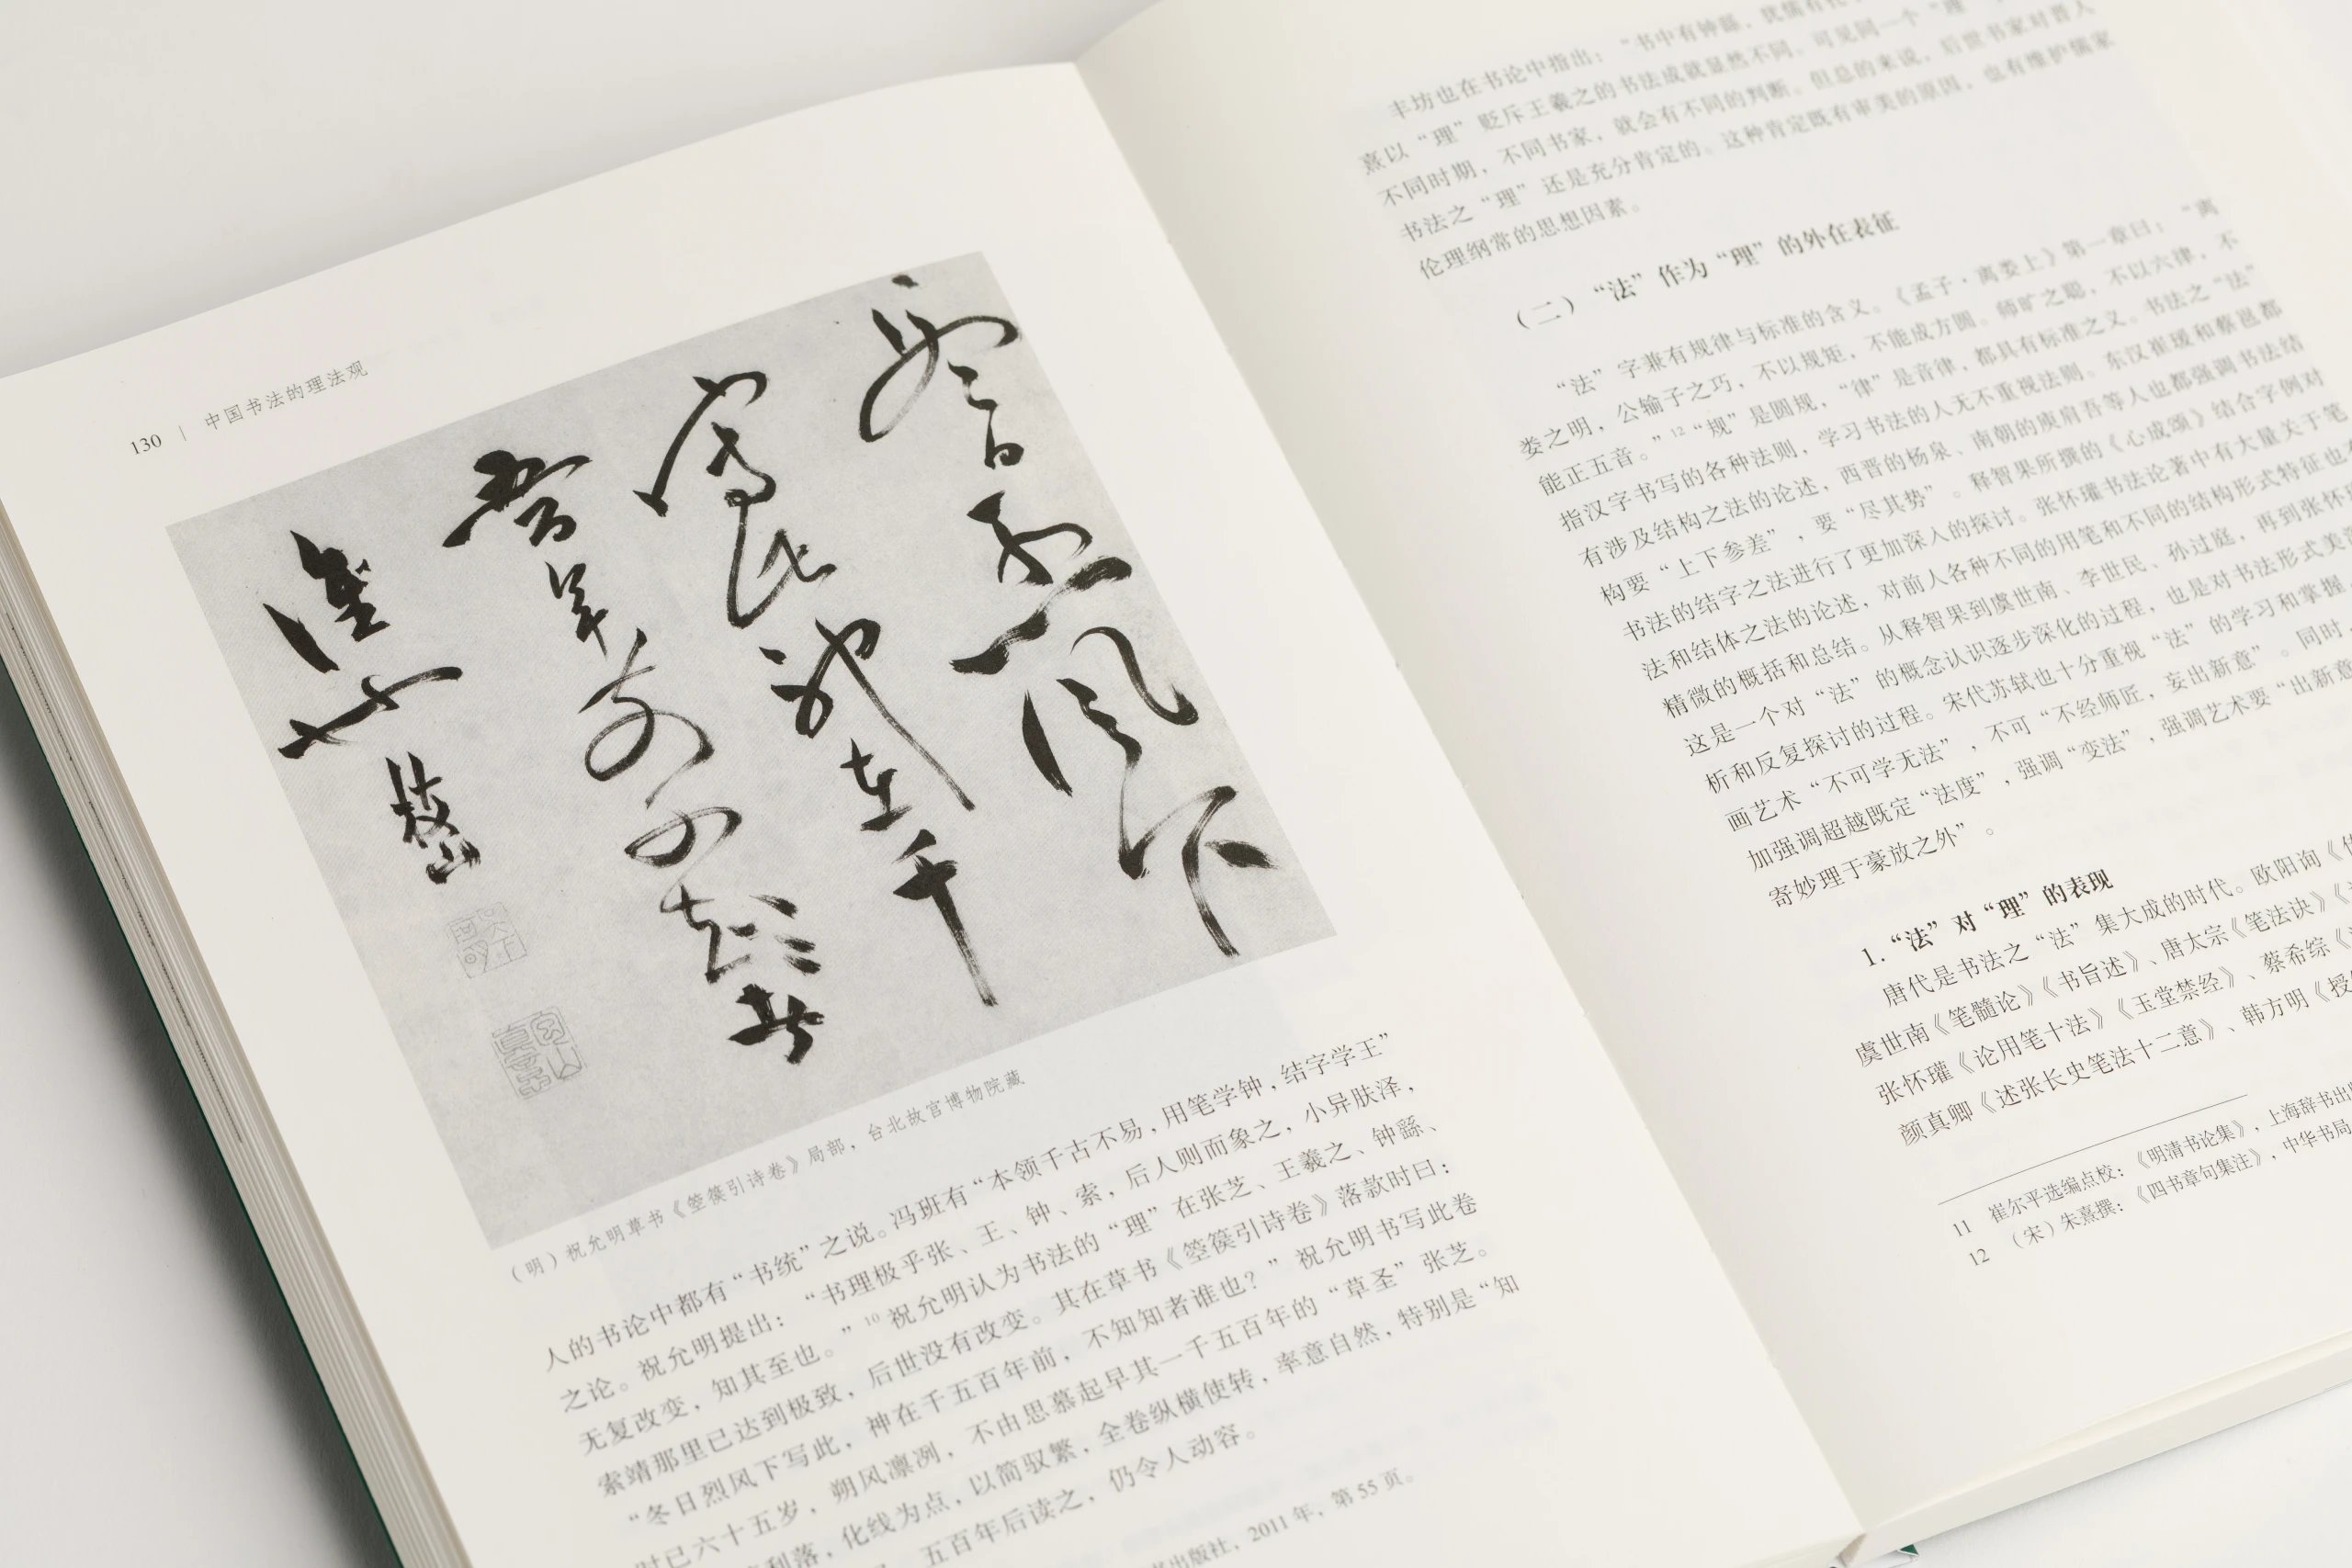 130 | 中国书法的理法观
冬日烈风下
写此神在千
五百年前不知知者
谁也 枝山
（明）祝允明草书《箜篌引诗卷》局部，台北故宫博物院藏
人的书论中都有“书统”之说。冯班有“本领千古不易，用笔学钟，结字学王”
之论。祝允明提出：“书理极乎张、王、钟、索，后人则而象之，小异肤泽，
无复改变，知其至也。”10 祝允明认为书法的“理”在张芝、王羲之、钟繇、
索靖那里已达到极致，后世没有改变。其在草书《箜篌引诗卷》落款时曰：
“冬日烈风下写此，神在千五百年前，不知知者谁也？”祝允明书写此卷
时已六十五岁，朔风凛冽，不由思慕起早其一千五百年的“草圣”张芝。
利落，化线为点，以简驭繁，全卷纵横使转，率意自然，特别是“知
五百年后读之，仍令人动容。
出版社，2011 年，第 55 页。
丰坊也在书论中指出：“书中有钟繇，犹儒有孔
熹以“理”贬斥王羲之的书法成就显然不同。可见同一个“理”
不同时期，不同书家，就会有不同的判断。但总的来说，后世书家对晋人
书法之“理”还是充分肯定的。这种肯定既有审美的原因，也有维护儒家
伦理纲常的思想因素。
（二）“法”作为“理”的外在表征
“法”字兼有规律与标准的含义。《孟子·离娄上》第一章曰：“离
娄之明，公输子之巧，不以规矩，不能成方圆。师旷之聪，不以六律，不
能正五音。”12“规”是圆规，“律”是音律，都具有标准之义。书法之“法”
指汉字书写的各种法则，学习书法的人无不重视法则。东汉崔瑗和蔡邕都
有涉及结构之法的论述，西晋的杨泉、南朝的庾肩吾等人也都强调书法结
构要“上下参差”，要“尽其势”。释智果所撰的《心成颂》结合字例对
书法的结字之法进行了更加深入的探讨。张怀瓘书法论著中有大量关于笔
法和结体之法的论述，对前人各种不同的用笔和不同的结构形式特征也
精微的概括和总结。从释智果到虞世南、李世民、孙过庭，再到张怀
这是一个对“法”的概念认识逐步深化的过程，也是对书法形式美
析和反复探讨的过程。宋代苏轼也十分重视“法”的学习和掌握
画艺术“不可学无法”，不可“不经师匠，妄出新意”。同时，
加强调超越既定“法度”，强调“变法”，强调艺术要“出新意
奇妙理于豪放之外”。
1. “法”对“理”的表现
唐代是书法之“法”集大成的时代。欧阳询《
虞世南《笔髓论》《书旨述》、唐太宗《笔法诀》《
张怀瓘《论用笔十法》《玉堂禁经》、蔡希综《
颜真卿《述张长史笔法十二意》、韩方明《授
11 崔尔平选编点校：《明清书论集》，上海辞书出
12 （宋）朱熹撰：《四书章句集注》，中华书局